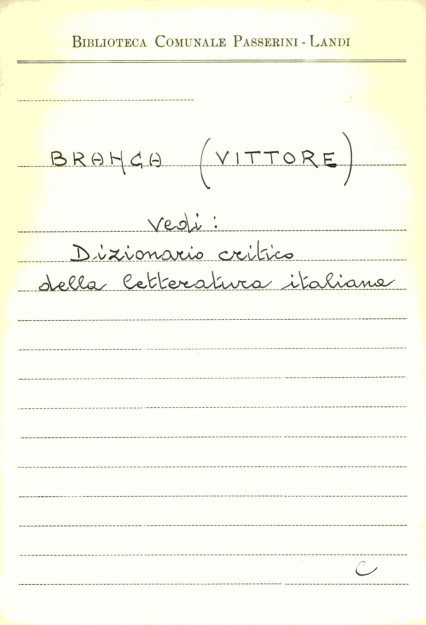 BIBLIOTECA COMUNALE PASSERINI - LANDI
BRANCA (VITTORE)
Vedi:
Dizionario critico
della letteratura italiana
C